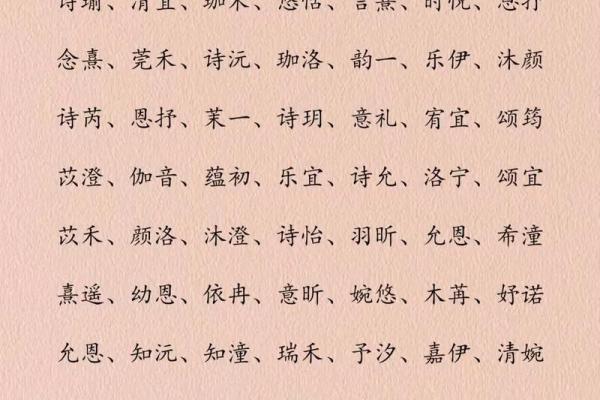 诗瑜、清宜、珈禾、悠恬、言熹、时悦、恩抒
念熹、莞禾、诗沅、珈洛、韵一、乐伊、沐颜
诗芮、恩抒、茉一、诗玥、意礼、宥宜、颂筠
苡澄、伽音、蕴初、乐宜、诗允、洛宁、颂宜
苡禾、颜洛、沐澄、诗怡、羽昕、允恩、希潼
熹遥、幼恩、依冉、意昕、婉悠、木苒、妤诺
允恩、知沅、知潼、瑞禾、予汐、嘉伊、清婉